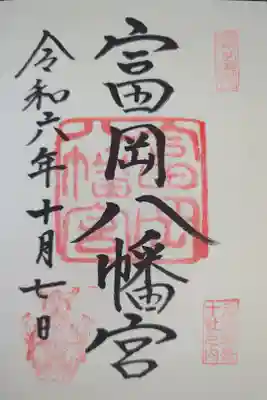 富岡八幡宮
令和六年十月七日
富岡八幡宮